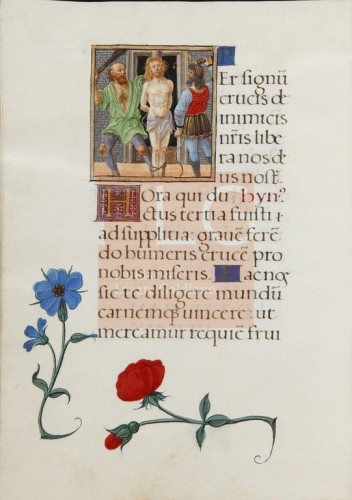 Per signū
crucis de
inimicis
nr̄is libe
ra nos de
us nost̄.
Hora qui du hyn⁹.
ctus tertia fuisti
ad supplitia: grauē ferē
do humeris crucē pro
nobis miseris. Fac nos
sic te diligere mundū
carnemq; uincere: ut
mereamur requiē frui